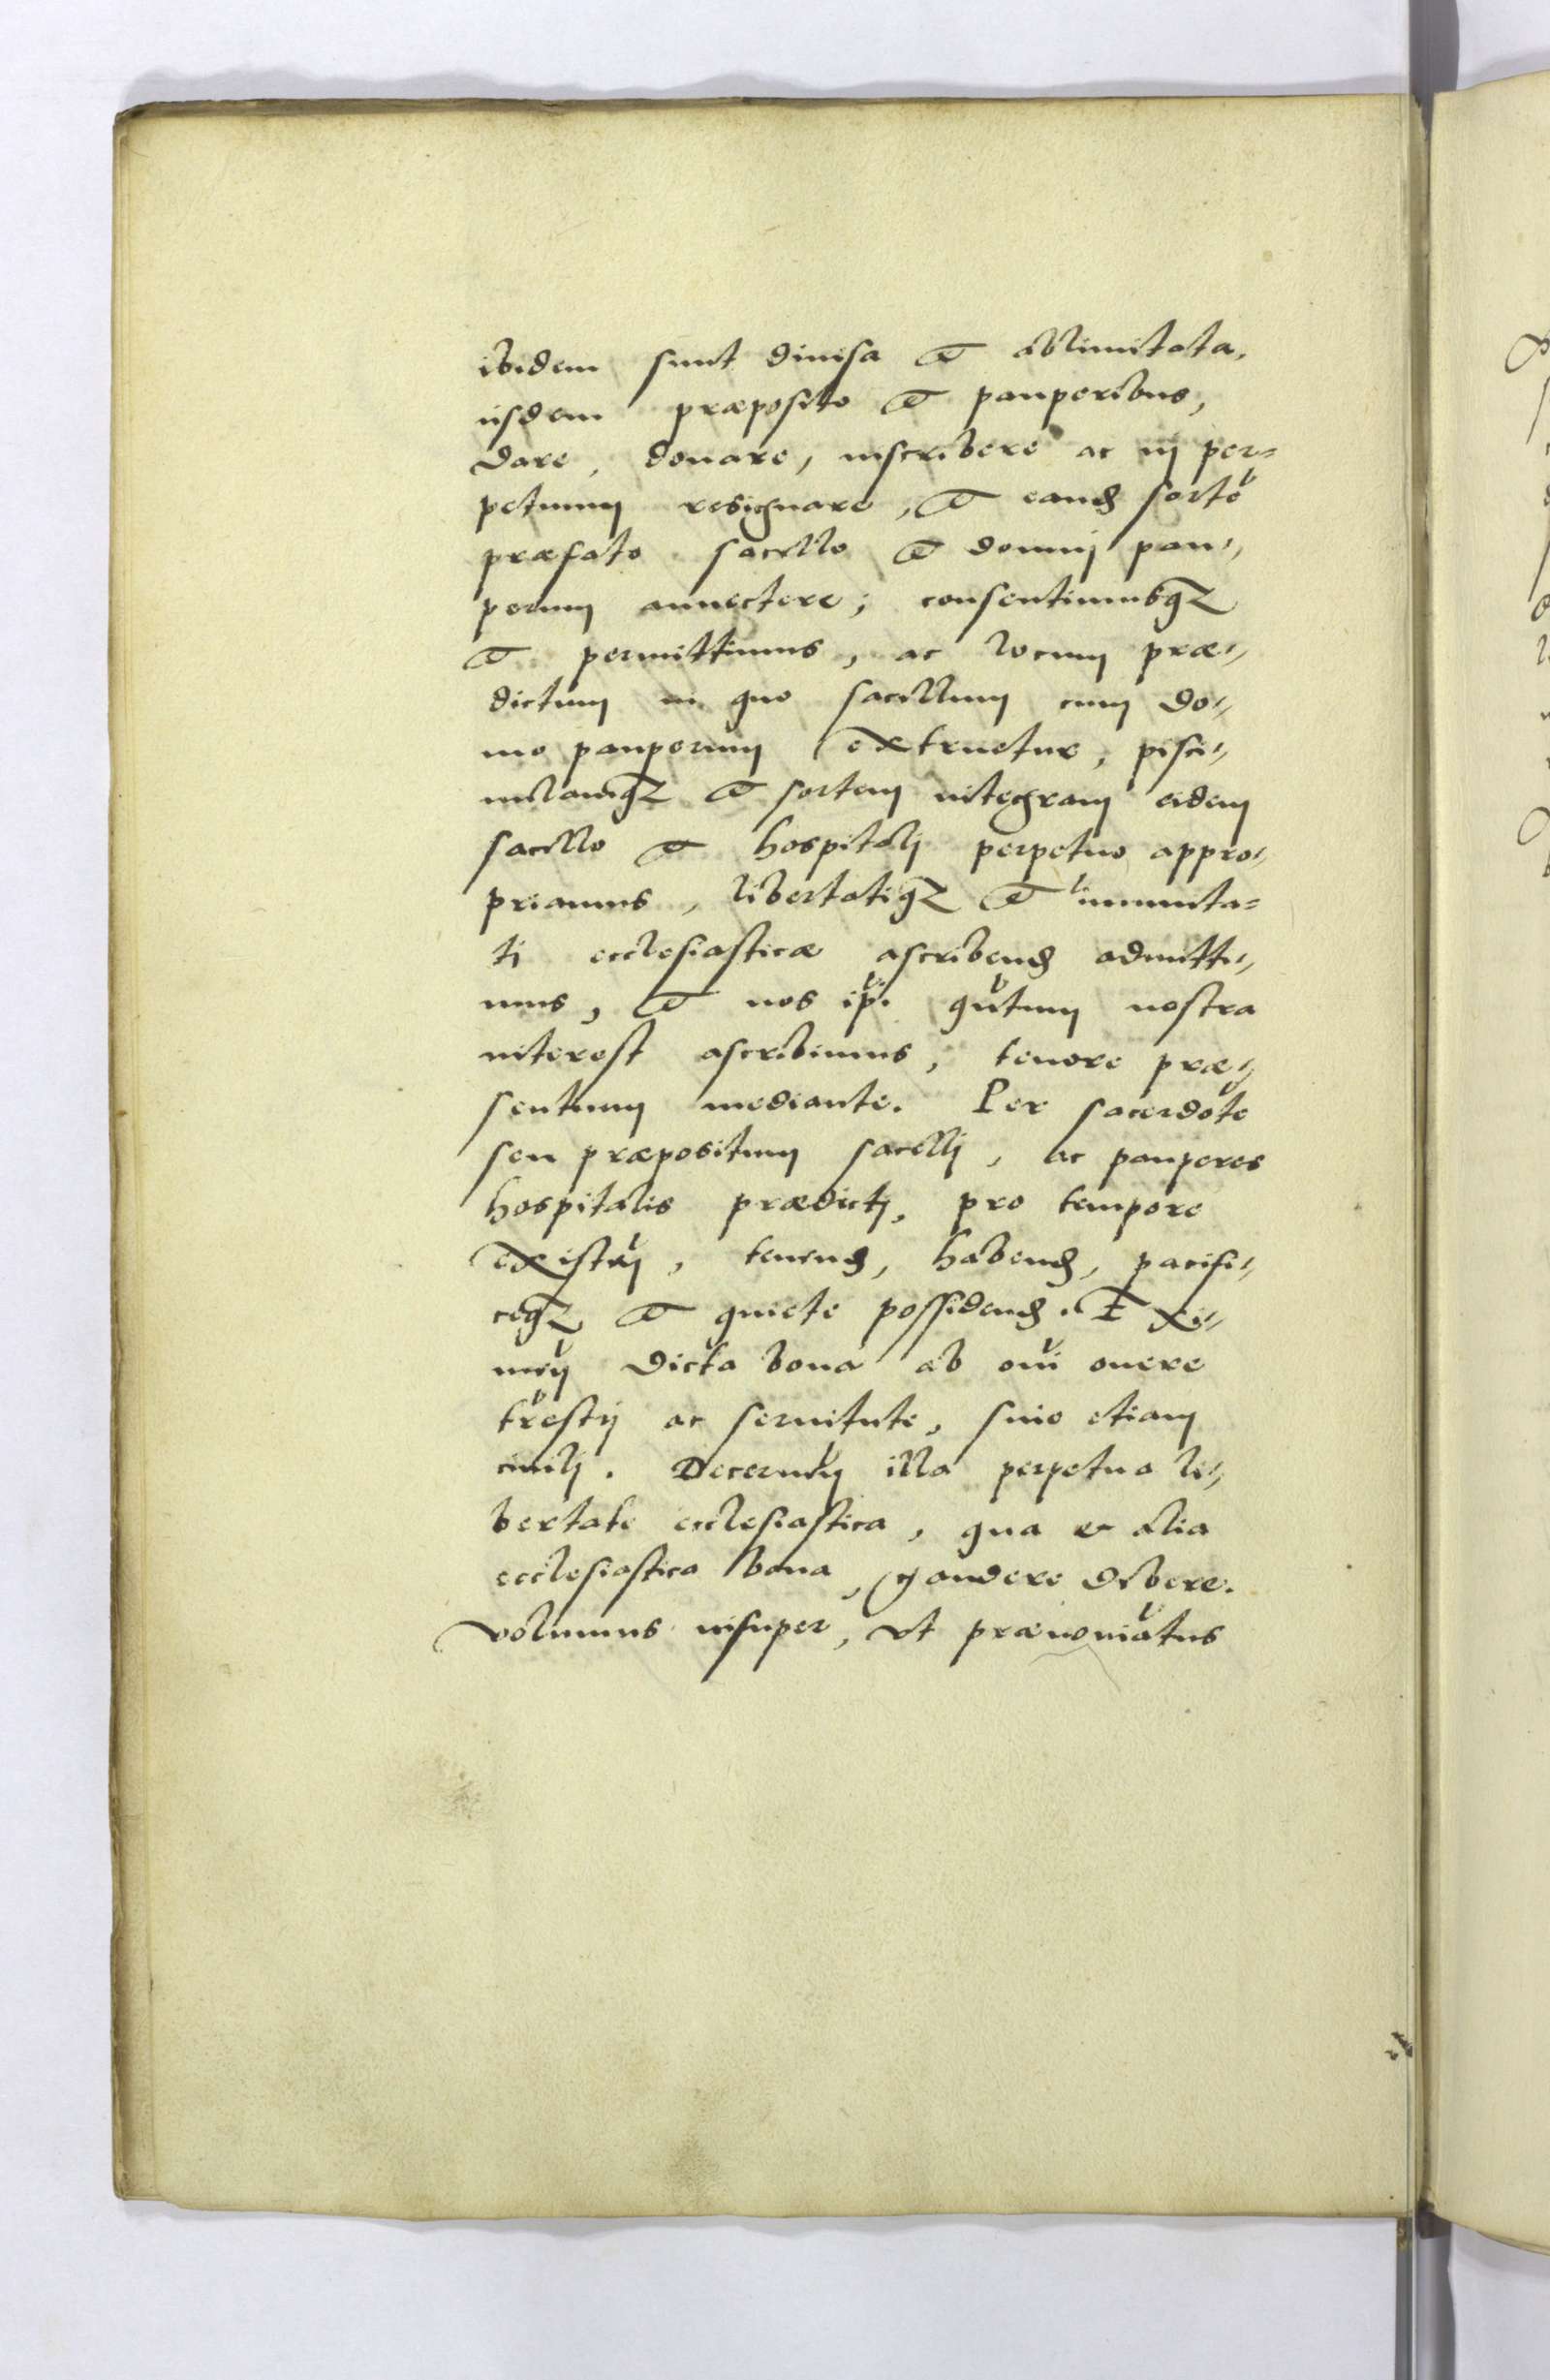 ibidem sunt diuisa et ablimitata,
iisdem præposito et pauperibus,
dare, donare, inscribere ac in per=
petuum resignare, et eand sortē
præfato sacello et domui pau=
perum annectere; consentimusq3
et permittimus, ac locum præ=
dictum in quo sacellum cum do=
mo pauperum extruetur, pisci=
nulamq3 et sortem integram eidem
sacello et hospitali perpetuo appro=
priamus, libertatiq3 et immunita=
ti ecclesiasticæ ascribend admitti=
mus, et nos ip̄i quātum nostra
interest ascribimus, tenore præ=
sentium mediante. Per sacerdotē
seu præpositum sacelli, ac pauperes
hospitalis prædicti, pro tempore
existēn, tenend, habend, pacifi=
ceq3 et quiete possidend. Exi=
men̄ dicta bona ab om̄i onere
tr̄estri ac seruitute, siue etiam
ciuili. Decernēn illa perpetua li=
bertate ecclesiastica, qua et alia
ecclesiastica bona, gaudere debere.
Volumus insuper, vt prænoīatus